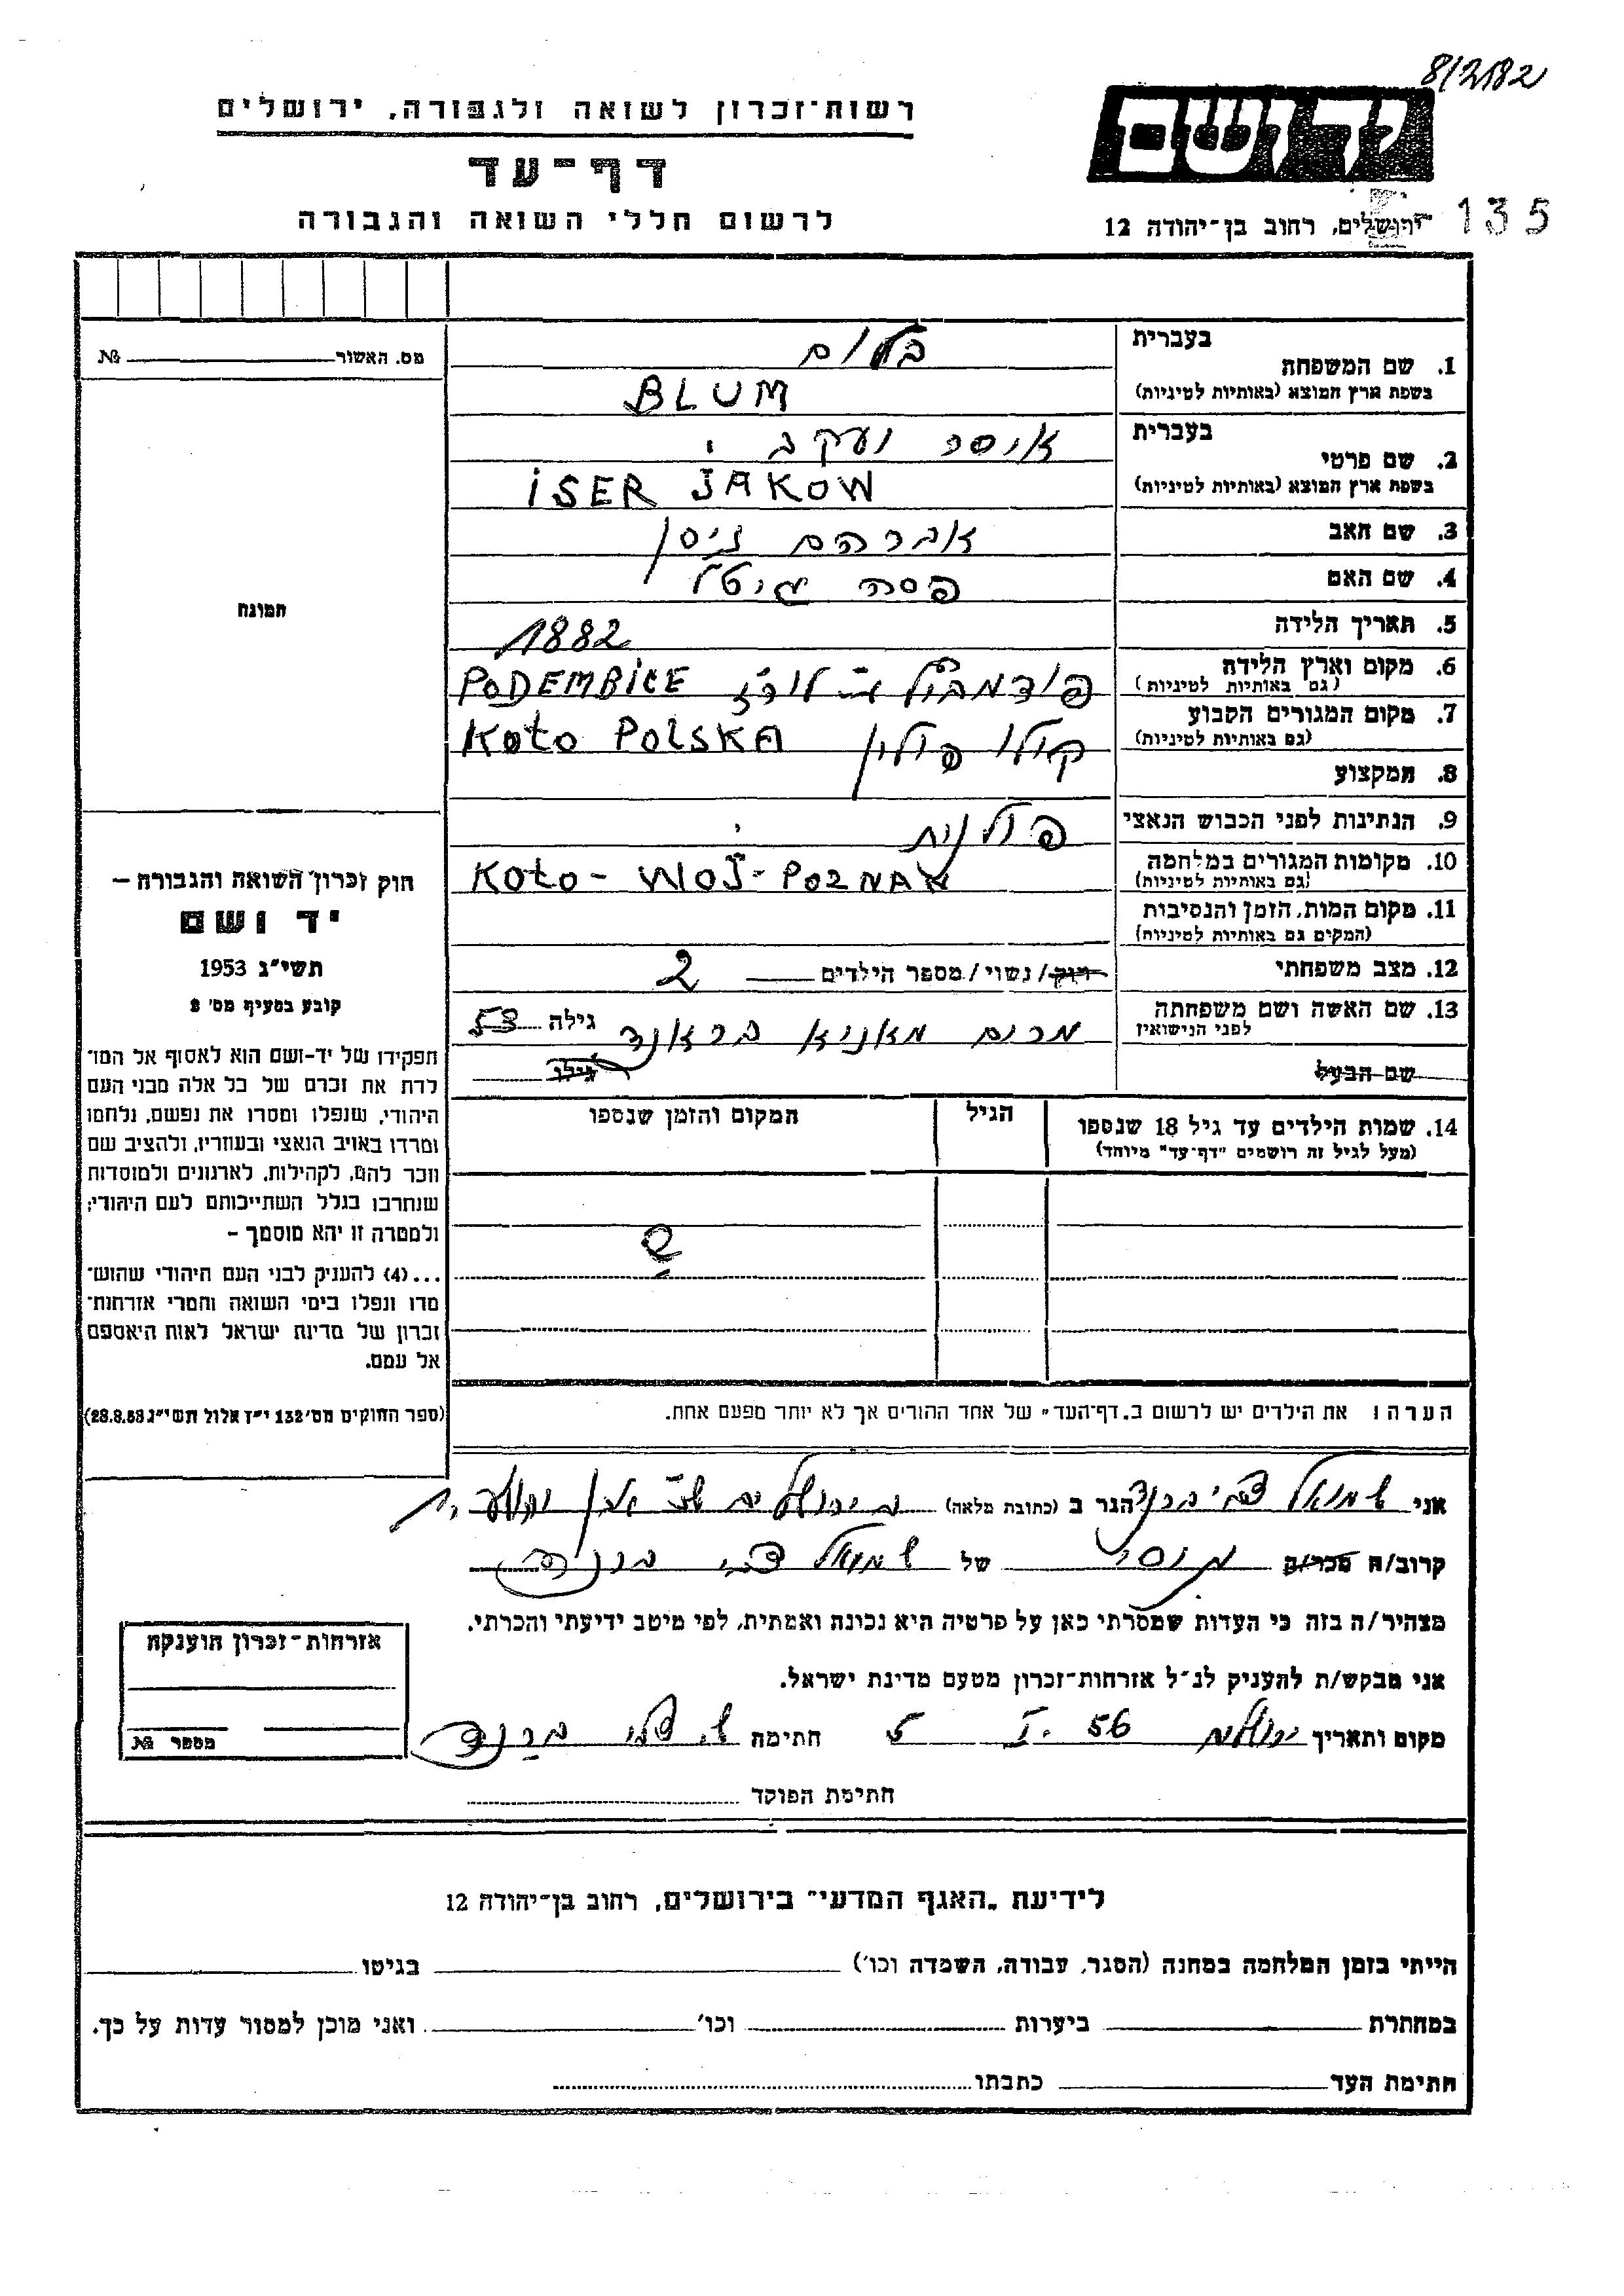 8/2182
רשות-זכרון לשואה ולגבורה, ירושלים
יד ושם
דף-עד
135
ירושלים, רחוב בן-יהודה 12
לרשום חללי השואה והגבורה
בעברית
1. שם המשפחה
בלום
(בשפת ארץ המוצא (באותיות לטיניות
BLUM
בעברית
2. שם פרטי
איסר יעקב
(בשפת ארץ המוצא (באותיות לטיניות
ISER JAKOW
3. שם האב
אברהם ניסן
4. שם האם
פסה גיטל
5. תאריך הלידה
1882
6. מקום וארץ הלידה
(גם באותיות לטיניות)
PODEMBICE
7. מקום המגורים הקבוע
(גם באותיות לטיניות)
קולו פולין KOŁO POLSKA
8. המקצוע
9. הנתינות לפני הכבוש הנאצי
פולנית
10. מקומות המגורים במלחמה
(גם באותיות לטיניות)
KOŁO - WOJ - POZNAN
11. מקום המות, הזמן והנסיבות
(המקום גם באותיות לטיניות)
12. מצב משפחתי
רווק / נשוי / מספר הילדים 2
13. שם האשה ושם משפחתה
לפני הנישואין
מרים מאניא בראנד גילה 53
שם הבעל גילו
14. שמות הילדים עד גיל 18 שנספו
(מעל לגיל זה רושמים "דף-עד" מיוחד)
הגיל
המקום והזמן שנספו
הערה: את הילדים יש לרשום ב„דף-העד" של אחד ההורים אך לא יותר מפעם אחת.
מס. האשור №
תמונה
חוק זכרון השואה והגבורה –
יד ושם
תשי"ג 1953
קובע בסעיף מס' 2
תפקידו של יד-ושם הוא לאסוף אל המו־
לדת את זכרם של כל אלה מבני העם
היהודי, שנפלו ומסרו את נפשם, נלחמו
ומרדו באויב הנאצי ובעוזריו, ולהציב שם
וזכר להם, לקהילות, לארגונים ולמוסדות
שנחרבו בגלל השתייכותם לעם היהודי;
ולמטרה זו יהא מוסמך –
...(4) להעניק לבני העם היהודי שהוש־
מדו ונפלו בימי השואה והמרי אזרחות־
זכרון של מדינת ישראל לאות היאספם
אל עמם.
(ספר החוקים מס' 132 י"ז אלול תשי"ג 28.8.53)
אני שמואל צבי ברנד הגר ב (כתובת מלאה) ירושלים
קרוב/ה מכר/ה של שמואל צבי ברנד
מצהיר/ה בזה כי העדות שמסרתי כאן על פרטיה היא נכונה ואמתית, לפי מיטב ידיעתי והכרתי.
אני מבקש/ת להעניק לנ"ל אזרחות-זכרון מטעם מדינת ישראל.
מקום ותאריך ירושלים 5 I. 56 חתימה ש. צבי ברנד
חתימת הפוקד
אזרחות-זכרון הוענקה
מספר №
לידיעת „האגף המדעי" בירושלים, רחוב בן-יהודה 12
הייתי בזמן המלחמה במחנה (הסגר, עבודה, השמדה וכו') בגיטו
במחתרת ביערות וכו' ואני מוכן למסור עדות על כך.
חתימת העד כתבתו